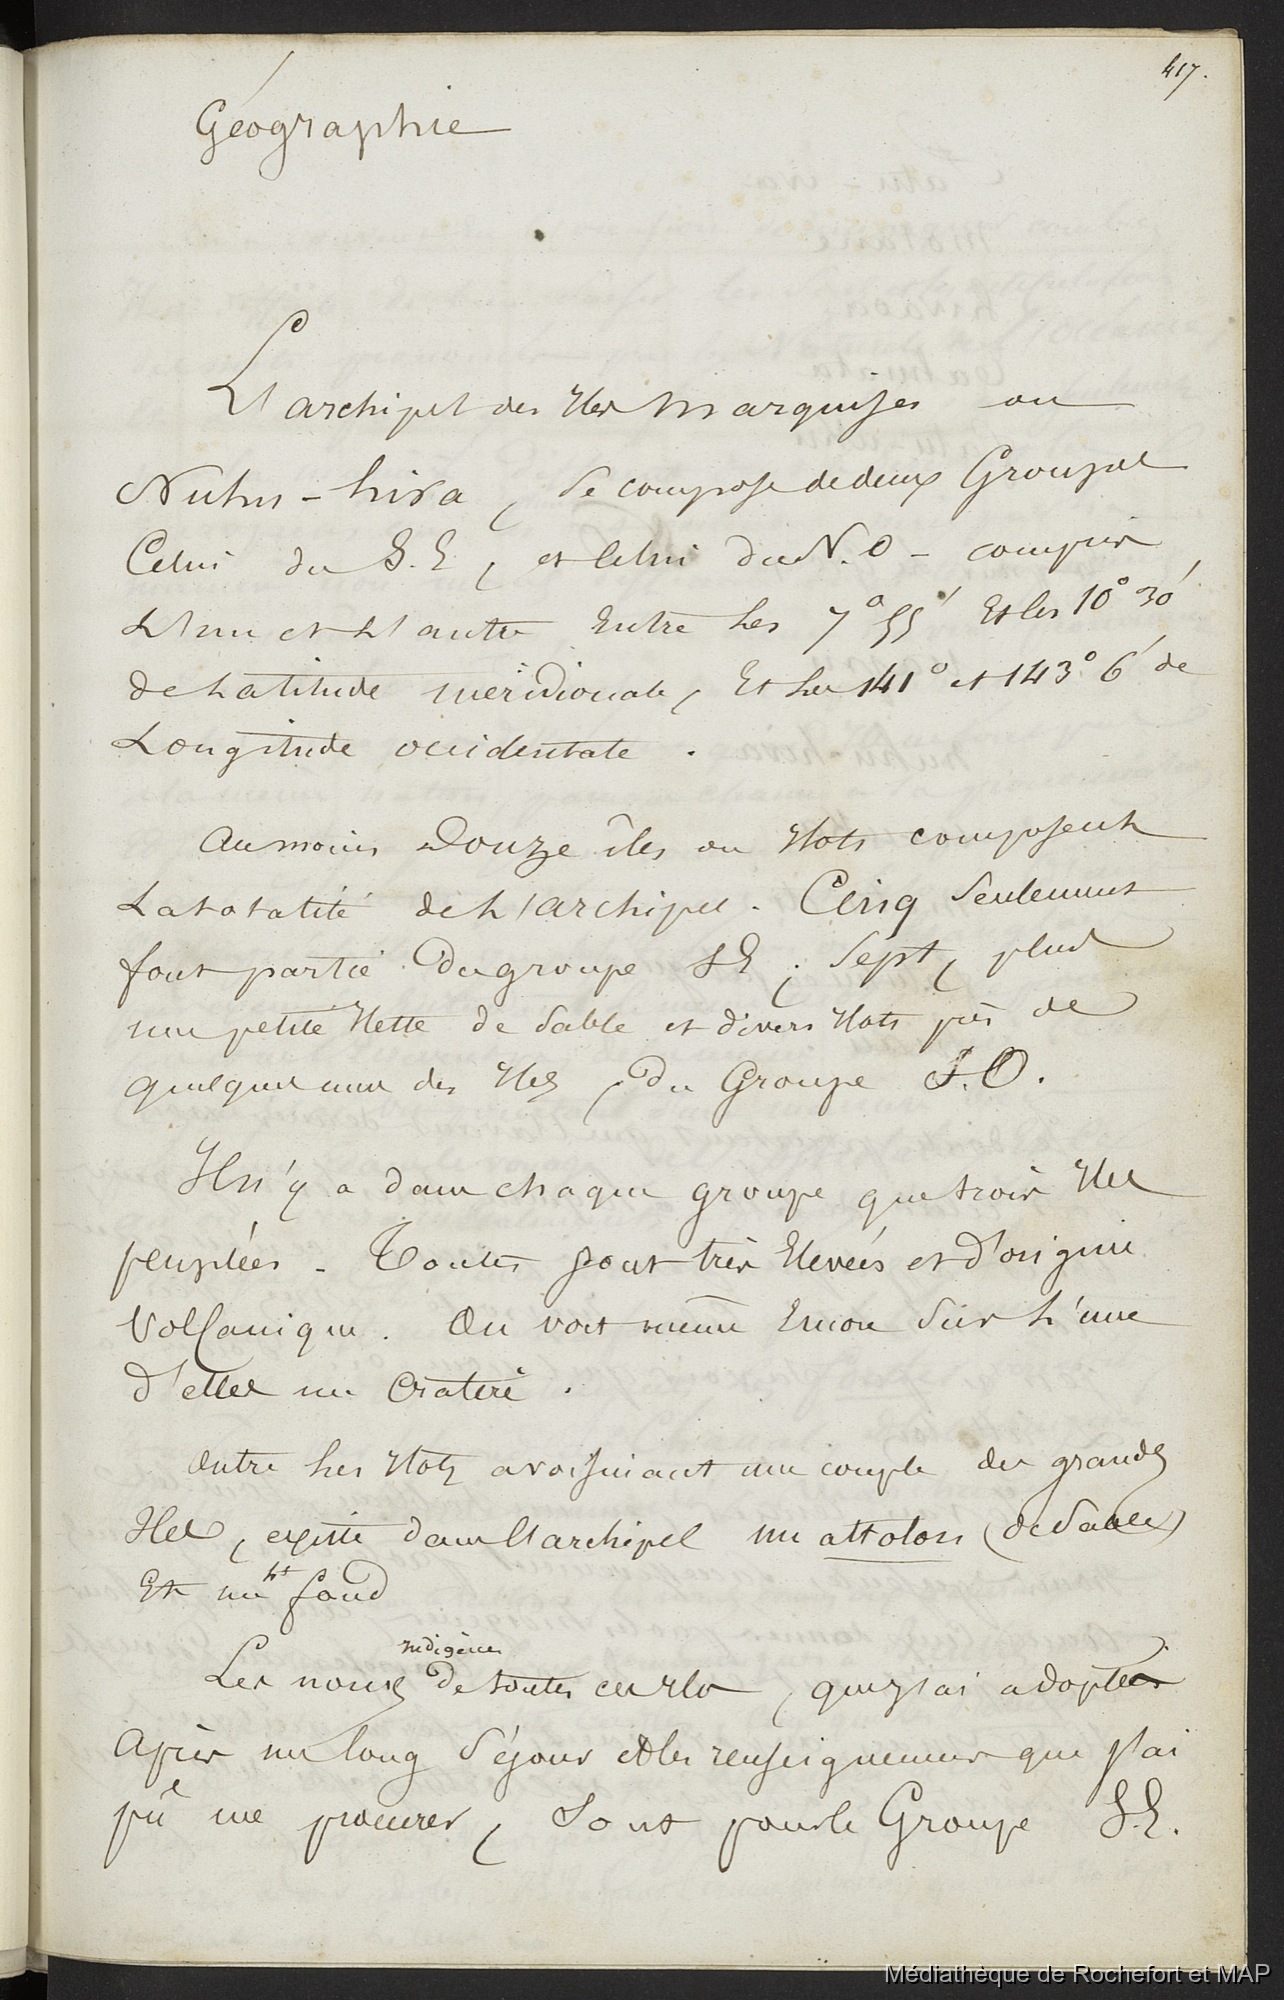 417.
Géographie
L'archipel des Iles Marquises ou
Nuhu-hiva, se compose de deux Groupes
Celui du S.E, et celui du N.O - compris
L'un et L'autre Entre Les 7° 55' Et les 10° 30'
de Latitude méridionale, Et Les 141° et 143° 6' de
Longitude occidentale.
Au moins Douze îles ou Ilots composent
La totalité de L'archipel. Cinq Seulement
font partie du groupe SE; Sept, plus
une petite Ilette de Sable et divers Ilots près de
quelques unes des Iles, du Groupe
Il n'y a dans chaque groupe que trois Iles
peuplées. Toutes sont très Elevées et d'origine
Volcanique. On voit même Encore Sur L'une
d'elles un Cratère.
Outre Les Ilots avoisinant une couple des grandes
Iles, existe dans L'archipel un attolon (de Sable)
Et un ht fond
Les noms indigènes de toutes ces Iles, que j'ai adoptés
Après un long Séjour et les renseignemens que j'ai
pû me procurer, Sont pour le Groupe S.E.
Médiathèque de Rochefort et MAP